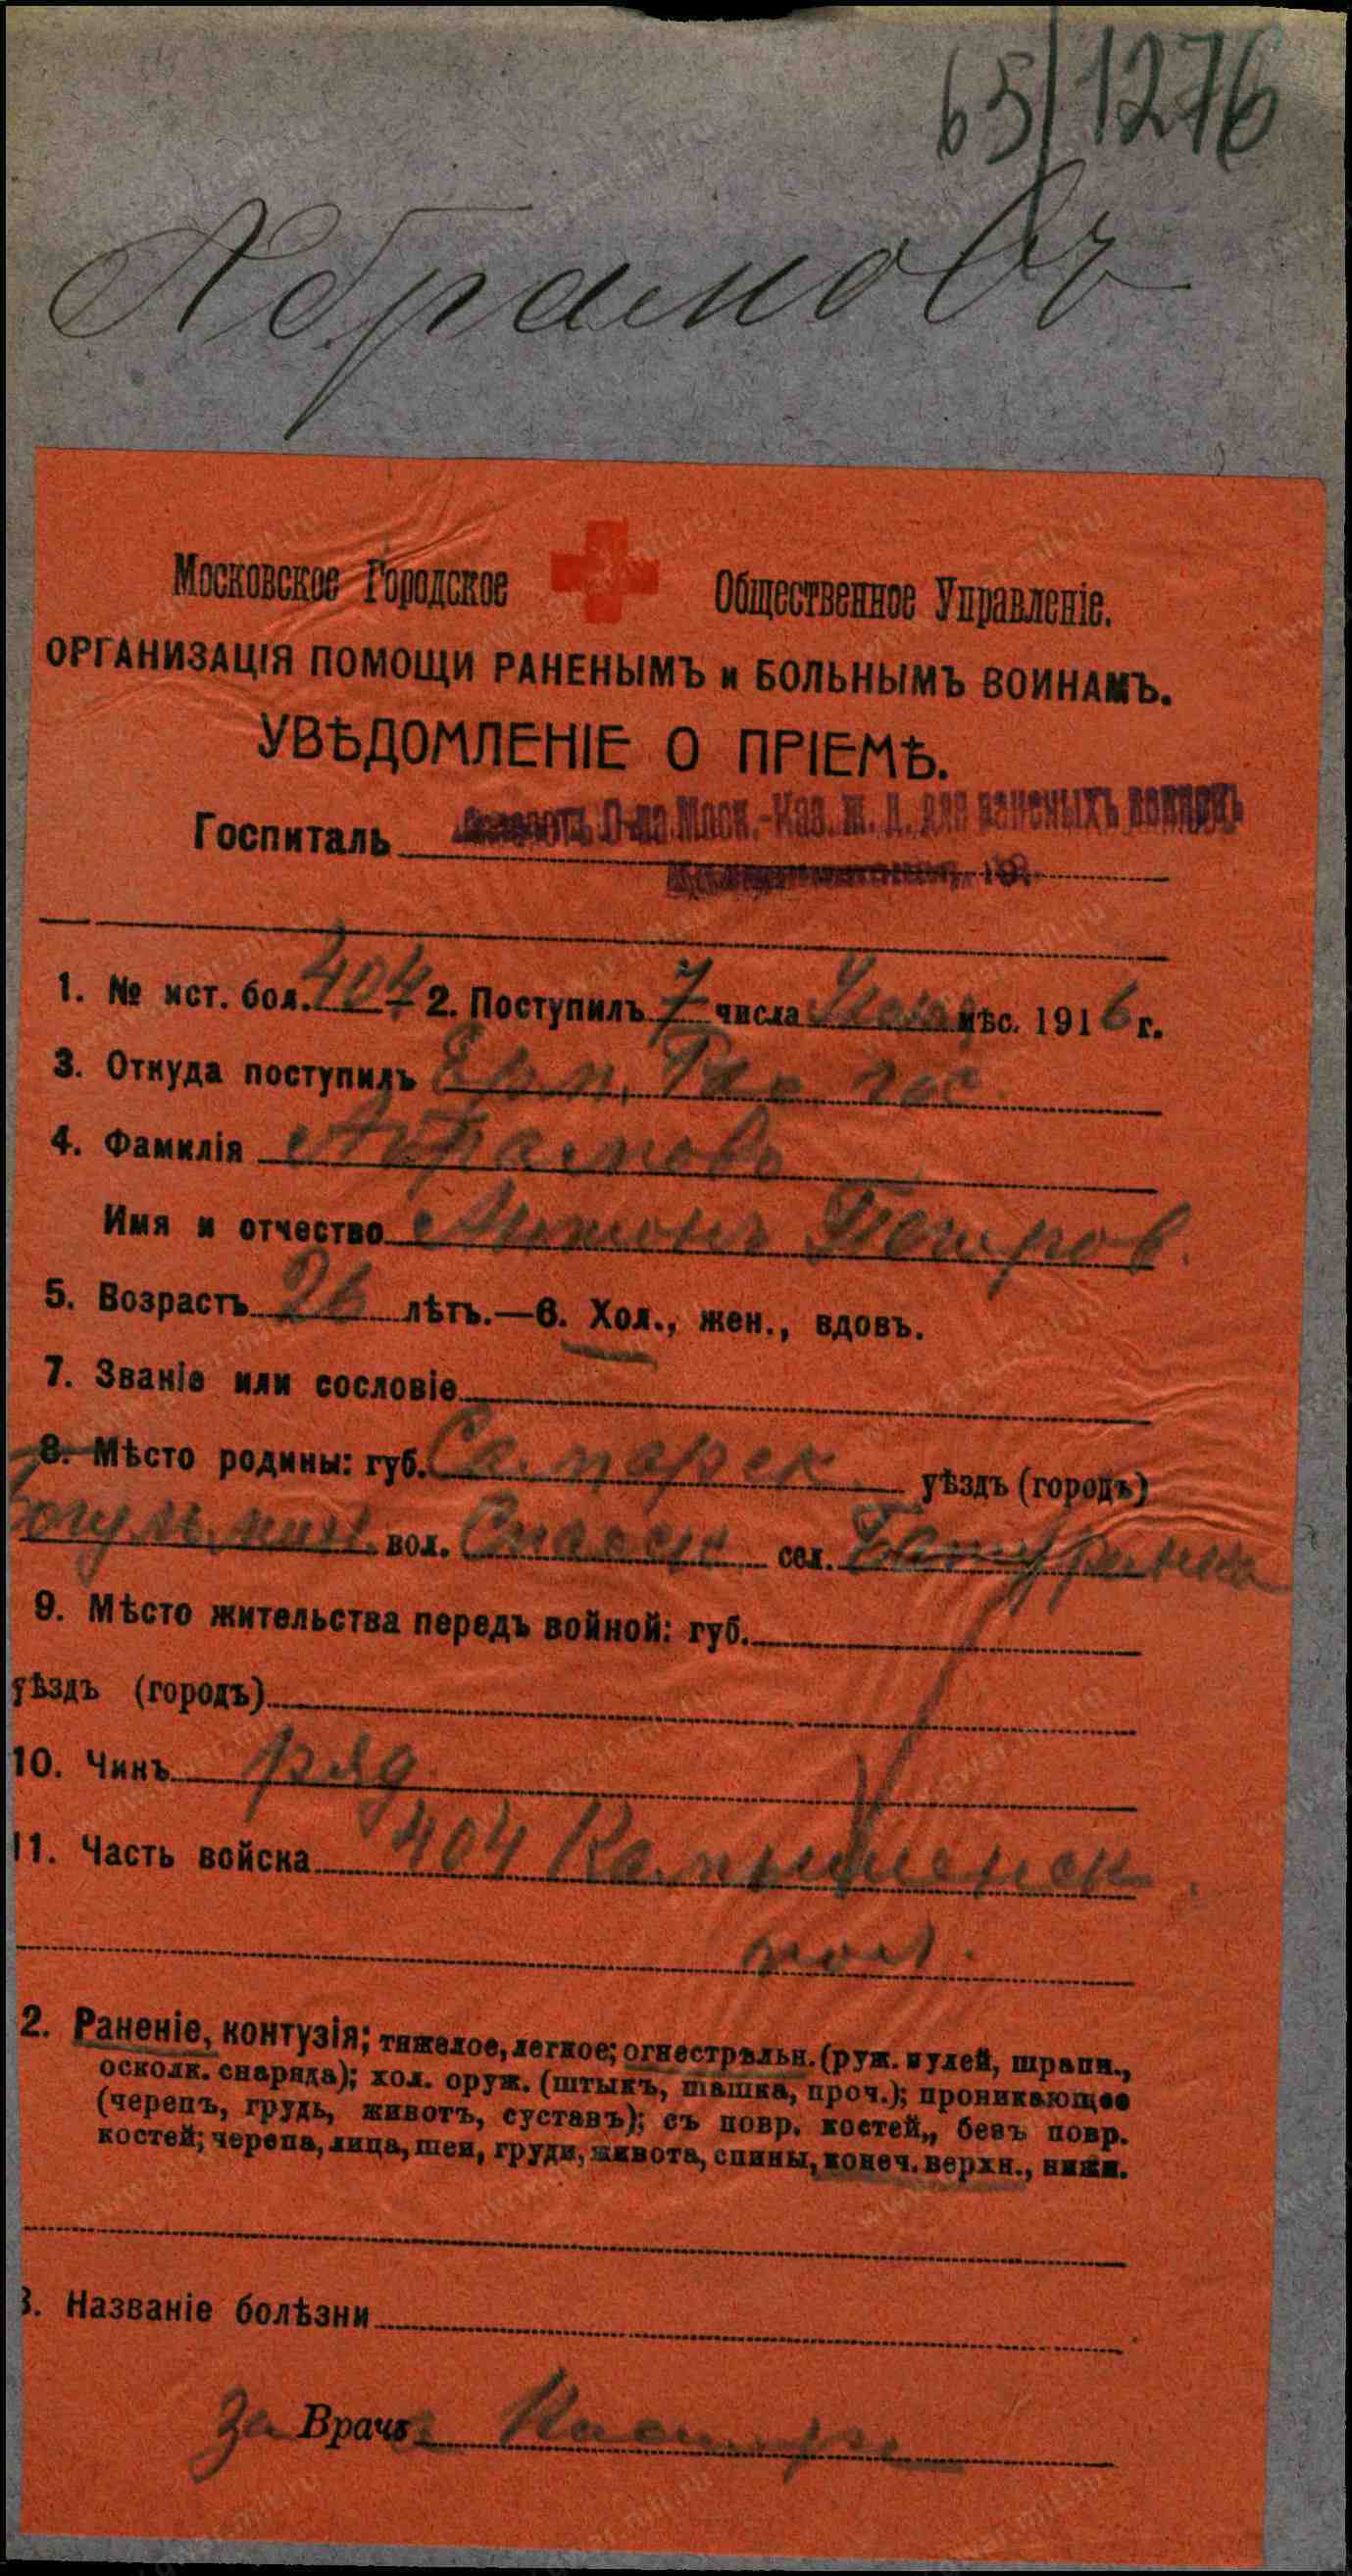 65/1276
Абрамовъ
Московское Городское Общественное Управленіе.
ОРГАНИЗАЦІЯ ПОМОЩИ РАНЕНЫМЪ и БОЛЬНЫМЪ ВОИНАМЪ.
УВѢДОМЛЕНІЕ О ПРІЕМѢ.
Госпиталь О-ва Моск.-Каз. Ж. Д. для раненыхъ воиновъ
1. № ист. бол. 404 2. Поступилъ 7 числа мѣс. 1916 г.
3. Откуда поступилъ Ерм. Рас. гос.
4. Фамилія Абрамовъ
Имя и отчество Антонъ Петров.
5. Возрастъ 26 лѣтъ.—6. Хол., жен., вдовъ.
7. Званіе или сословіе
8. Мѣсто родины: губ. Самарск. уѣздъ (городъ)
Бугульмин. вол. Спасск. сел. Батуранка
9. Мѣсто жительства передъ войной: губ.
уѣздъ (городъ)
10. Чинъ ряд.
11. Часть войска 404 Камышенск.
пол.
2. Раненіе, контузія; тяжелое, легкое; огнестрѣльн. (руж. пулей, шрапн.,
осколк. снаряда); хол. оруж. (штыкъ, шашка, проч.); проникающее
(черепъ, грудь, животъ, суставъ); съ повр. костей,, безъ повр.
костей; черепа, лица, шеи, груди, живота, спины, конеч. верхн., нижн.
3. Названіе болѣзни
За Врача